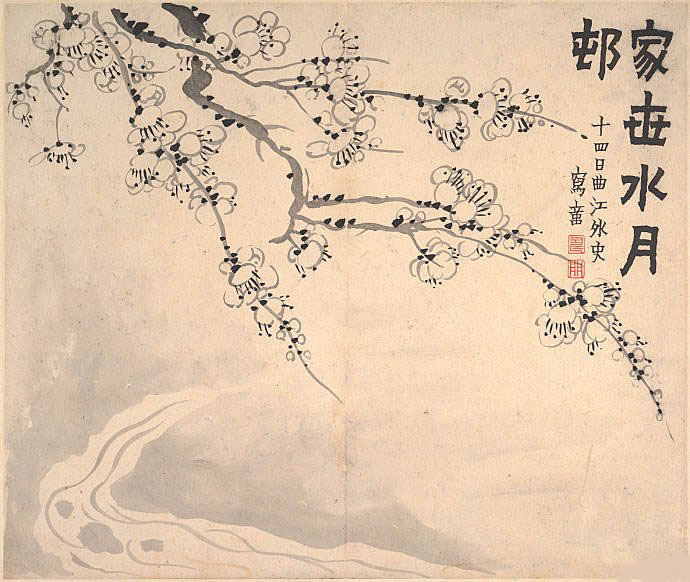 家世水月
邨
十四日曲江外史
寫意